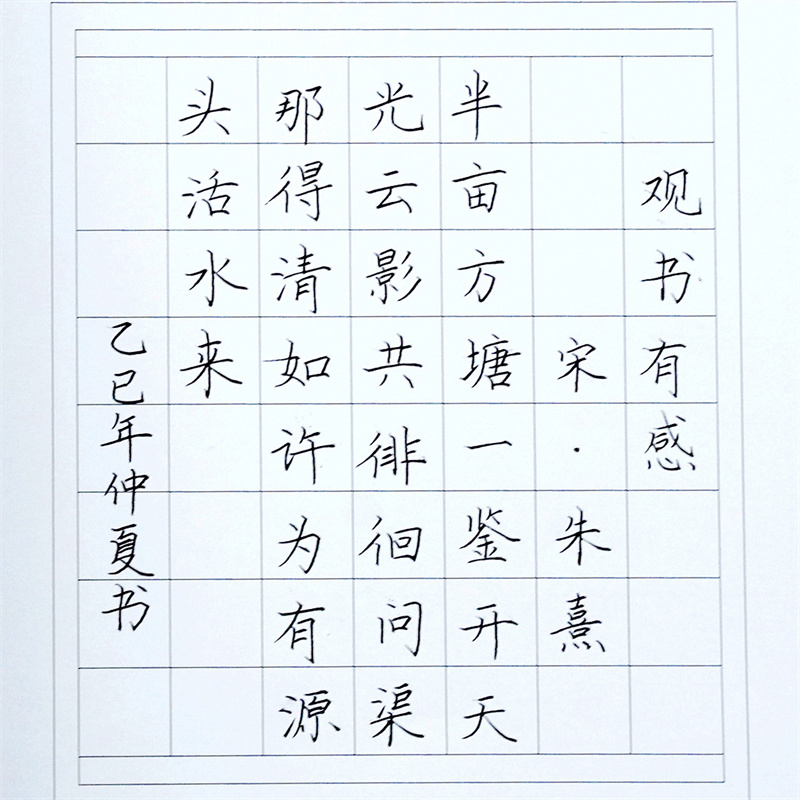 观书有感
宋·朱熹
半亩方塘一鉴开天
光云影共徘徊问渠
那得清如许为有源
头活水来
乙巳年仲夏书